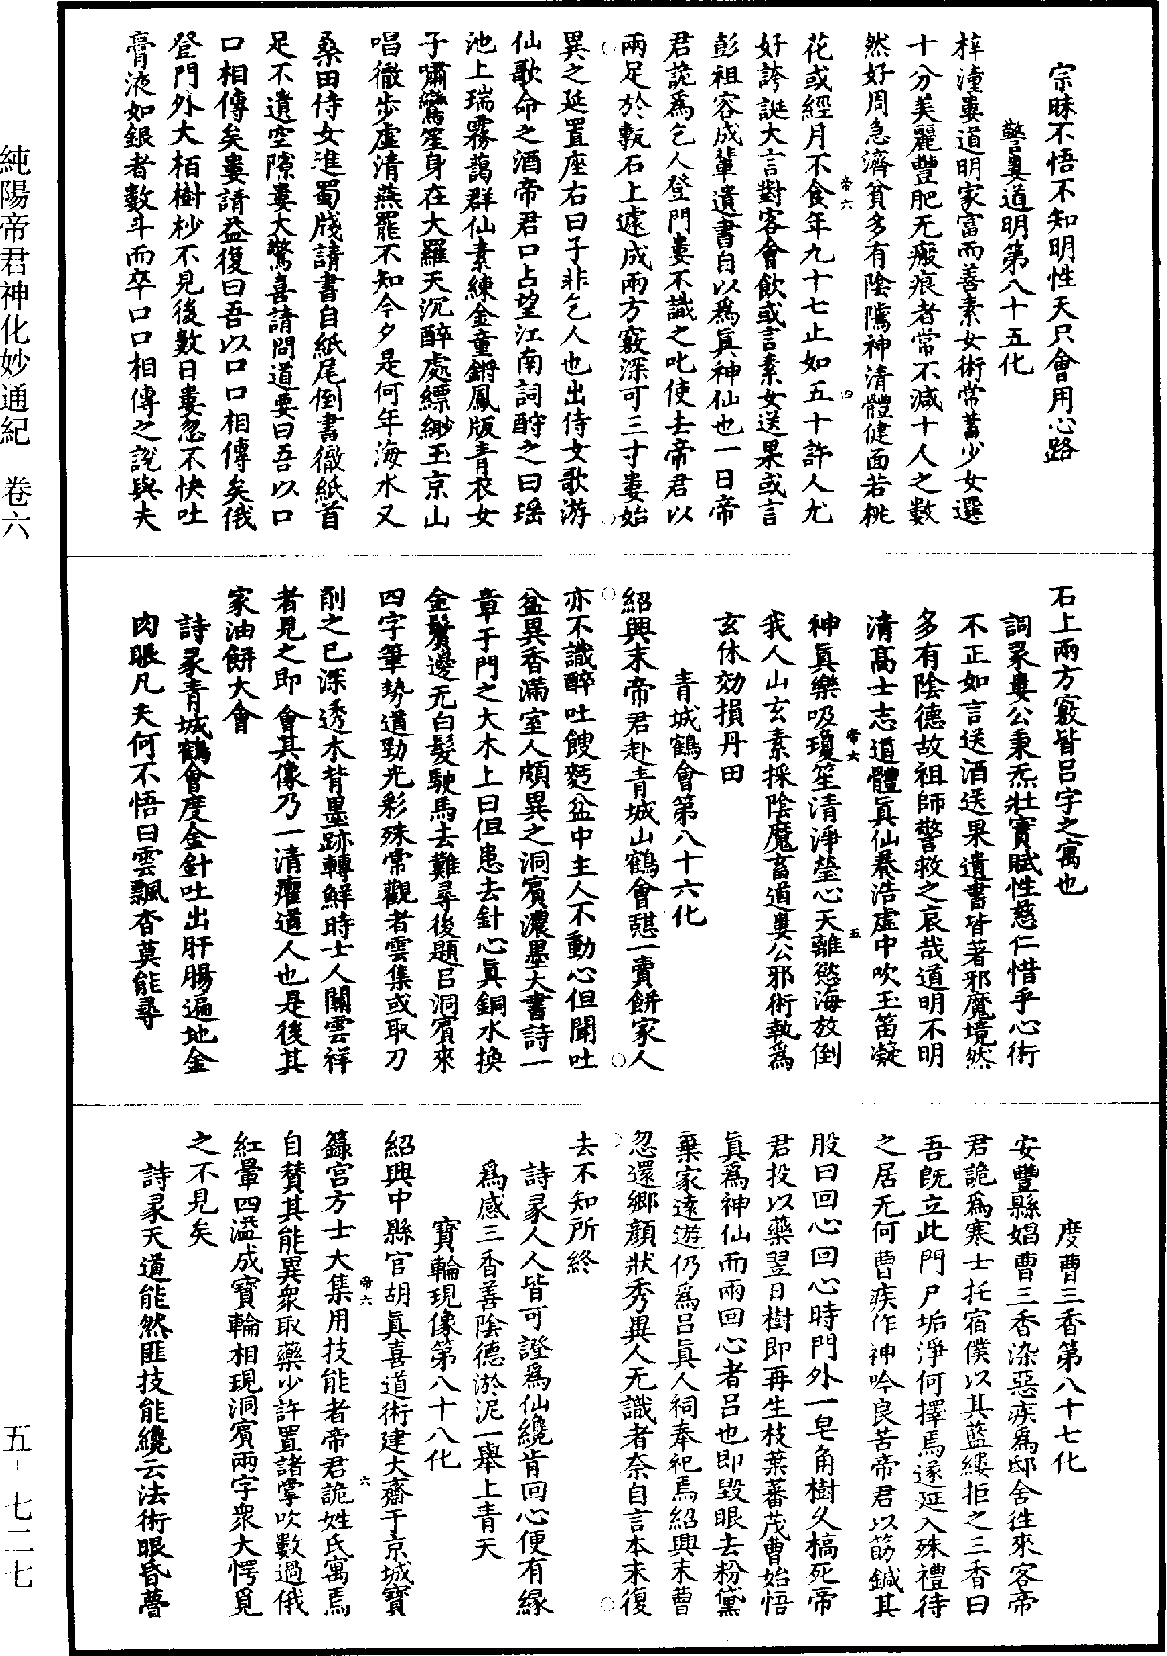 宗昧不悟不知明性天只會用心路
警婁道明第八十五化
梓潼婁道明家富而善素女術常蓄少女選
十分美麗豐肥无瘢痕者常不減十人之數
然好周急濟貧多有陰隲神清體健面若桃
花或經月不食年九十七止如五十許人尤
好誇誕大言對客會飲或言素女送果或言
彭祖容成輩遺書自以為真神仙也一日帝
君詭為乞人登門婁不識之叱使去帝君以
兩足於甎石上遽成兩方竅深可三寸婁始
異之延置座右曰子非乞人也出侍女歌游
仙歌命之酒帝君口占望江南詞酧之曰瑶
池上瑞霧藹群仙素練金童鏘鳳版青衣女
子嘯鸞笙身在大羅天沉醉處縹緲玉京山
唱徹步虛清燕罷不知今夕是何年海水又
桑田侍女進蜀牋請書自紙尾倒書徹紙首
足不遺空隙婁大驚喜請問道要曰吾以口
口相傳矣婁請益復曰吾以口口相傳矣俄
登門外大栢樹杪不見後數日婁忽不快吐
膏液如銀者數斗而卒口口相傳之說與夫
石上兩方竅皆呂字之寓也
詞彔婁公秉炁壯實賦性慈仁惜乎心術
不正如言送酒送果遺書皆著邪魔境然
多有陰德故祖師警救之哀哉道明不明
清高士志道體真仙棊浩虛中吹玉笛凝
神真樂吸瓊笙清淨瑩心天離慾海放倒
我人山玄素採陰魔畜道婁公邪術執為
玄休効損丹田
青城鶴會第八十六化
紹興末帝君赴青城山鶴會憇一賣餅家人
亦不識醉吐餿麫盆中主人不動心但聞吐
盆異香滿室人頗異之洞賓濃墨大書詩一
章于門之大木上曰但患去針心真銅水換
金鬢邊无白髮駛馬去難尋後題呂洞賓來
四字筆勢遒勁光彩殊常觀者雲集或取刀
削之已深透木背墨跡轉鮮時士人關雲祥
者見之即會其像乃一清癯道人也是後其
家油餅大會
詩彔青城鶴會度金針吐出肝腸遍地金
肉眼凡夫何不悟白雲飄杳莫能尋
度曹三香第八十七化
安豐縣娼曹三香染惡疾為邸舍徃來客帝
君詭為寒士托宿僕以其藍縷拒之三香曰
吾旣立此門戶垢淨何擇焉遂延入殊禮待
之居无何曹疾作神吟良苦帝君以筯鍼其
股曰回心回心時門外一皂角樹久槁死帝
君投以藥翌日樹即再生枝葉蕃茂曹始悟
真為神仙而兩回心者呂也即毀眼去粉黛
棄家遠遊仍為呂真人祠奉祀焉紹興末曹
忽還鄉顏狀秀異人无識者奈自言本末復
去不知所終
詩彔人人皆可證為仙纔肯回心便有緣
為感三香善陰德淤泥一舉上青天
寶輪現像第八十八化
紹興中縣官胡真喜道術建大齋于京城寶
籙宮方士大集用技能者帝君詭姓氏寓焉
自賛其能異衆取藥少許置諸掌吹數過俄
紅暈四溢成寶輪相現洞賓兩字衆大愕覓
之不見矣
詩彔天道能然匪技能纔云法術眼昏瞢
純陽帝君神化妙通紀　卷六
五－七二七
帝六
四
帝六
五
帝六
六